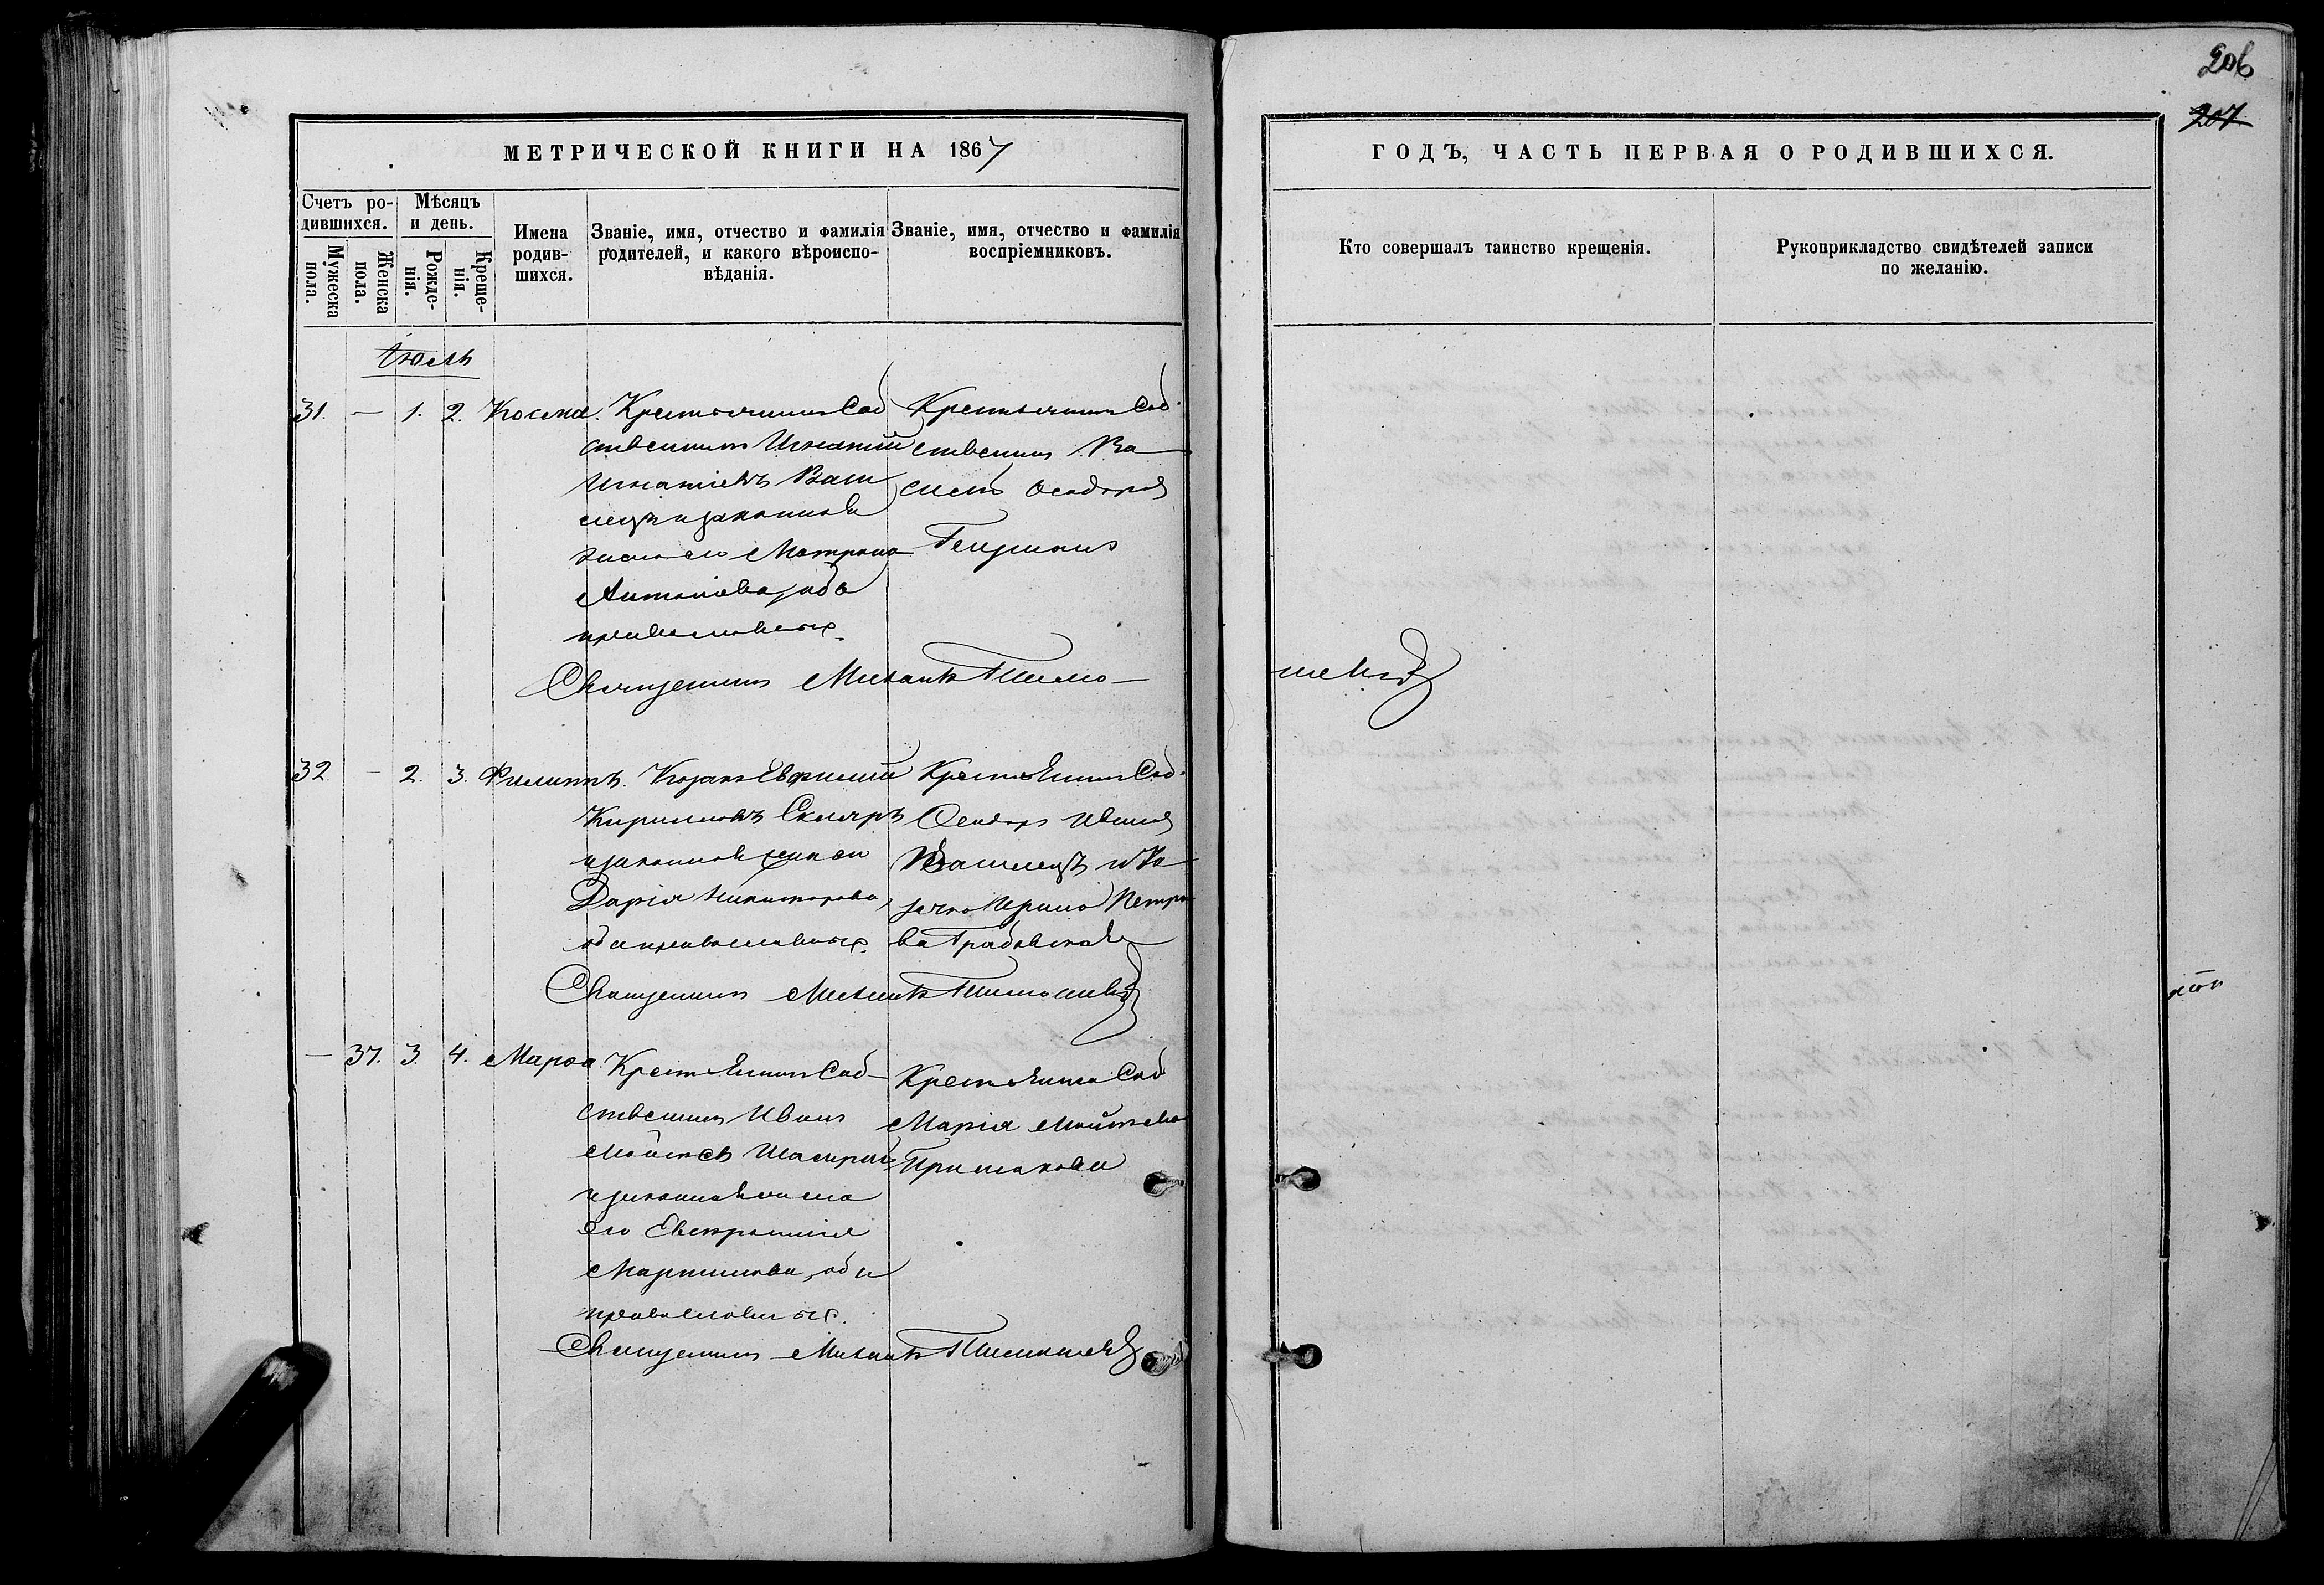 206
207
МЕТРИЧЕСКОЙ КНИГИ НА 1867
ГОДЪ, ЧАСТЬ ПЕРВАЯ О РОДИВШИХСЯ.
Счетъ ро-
дившихся.
Мужеска
пола.
Женска
пола.
Мѣсяцъ
и день.
Рожде-
нія.
Креще-
нія.
Имена
родив-
шихся.
Званіе, имя, отчество и фамилія
родителей, и какого вѣроиспо-
вѣданія.
Званіе, имя, отчество и фамилія
воспріемниковъ.
Кто совершалъ таинство крещенія.
Рукоприкладство свидѣтелей записи
по желанію.
Іюль
31. — 1. 2. Косма.
Крестьянинъ Соб
ственникъ Игнатій
Игнатіевъ Ваш
и законная
жена его Матрона
Антоніева, оба
православные.
Крестьянинъ Соб
ственникъ Ва
силій Ѳеодоровъ
Священникъ Михаилъ Тимо—
шевъ
32 — 2. 3. Филиппъ.
Козакъ Евфимій
Кирилловъ Скляръ
и законная жена его
Дарія Никифорова,
оба православные.
Крестьянинъ Соб.
Ѳеодоръ Ивановъ
и Ка
зачка Ирина Петро
ва Грабовская
Священникъ Михаилъ Тимошевъ
— 37. 3. 4. Марѳа
Крестьянинъ Соб—
ственникъ Иванъ
Моѵсеевъ
и законная жена
его Евфросинія
Мартинова, оба
православные.
Крестьянка Соб
Марія Моѵсеева
Примакова
Священникъ Михаилъ Тимошевъ